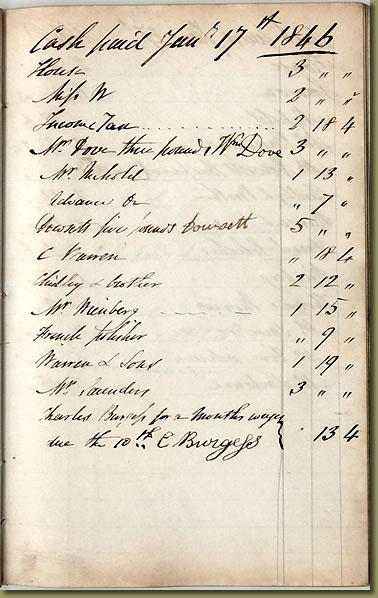 Cash paid Jany 17th 1846
House 3 " "
Miss W 2 " "
Income Tax .......... 2 18 4
Mr Dove three pounds, Wm Dove 3 " "
Mr Nichold 1 13 "
Advance " 7 "
Dowsetts five pounds Dowsett 5 " "
C Warren " 18 4
& brother 2 12 "
Mr Wienberg 1 15 "
French polisher " 9 "
Warren & Sons 1 19 "
Mr Saunders 3 " "
Charles Burgess for a Months wages
due the 10th C Burgess } " 13 4